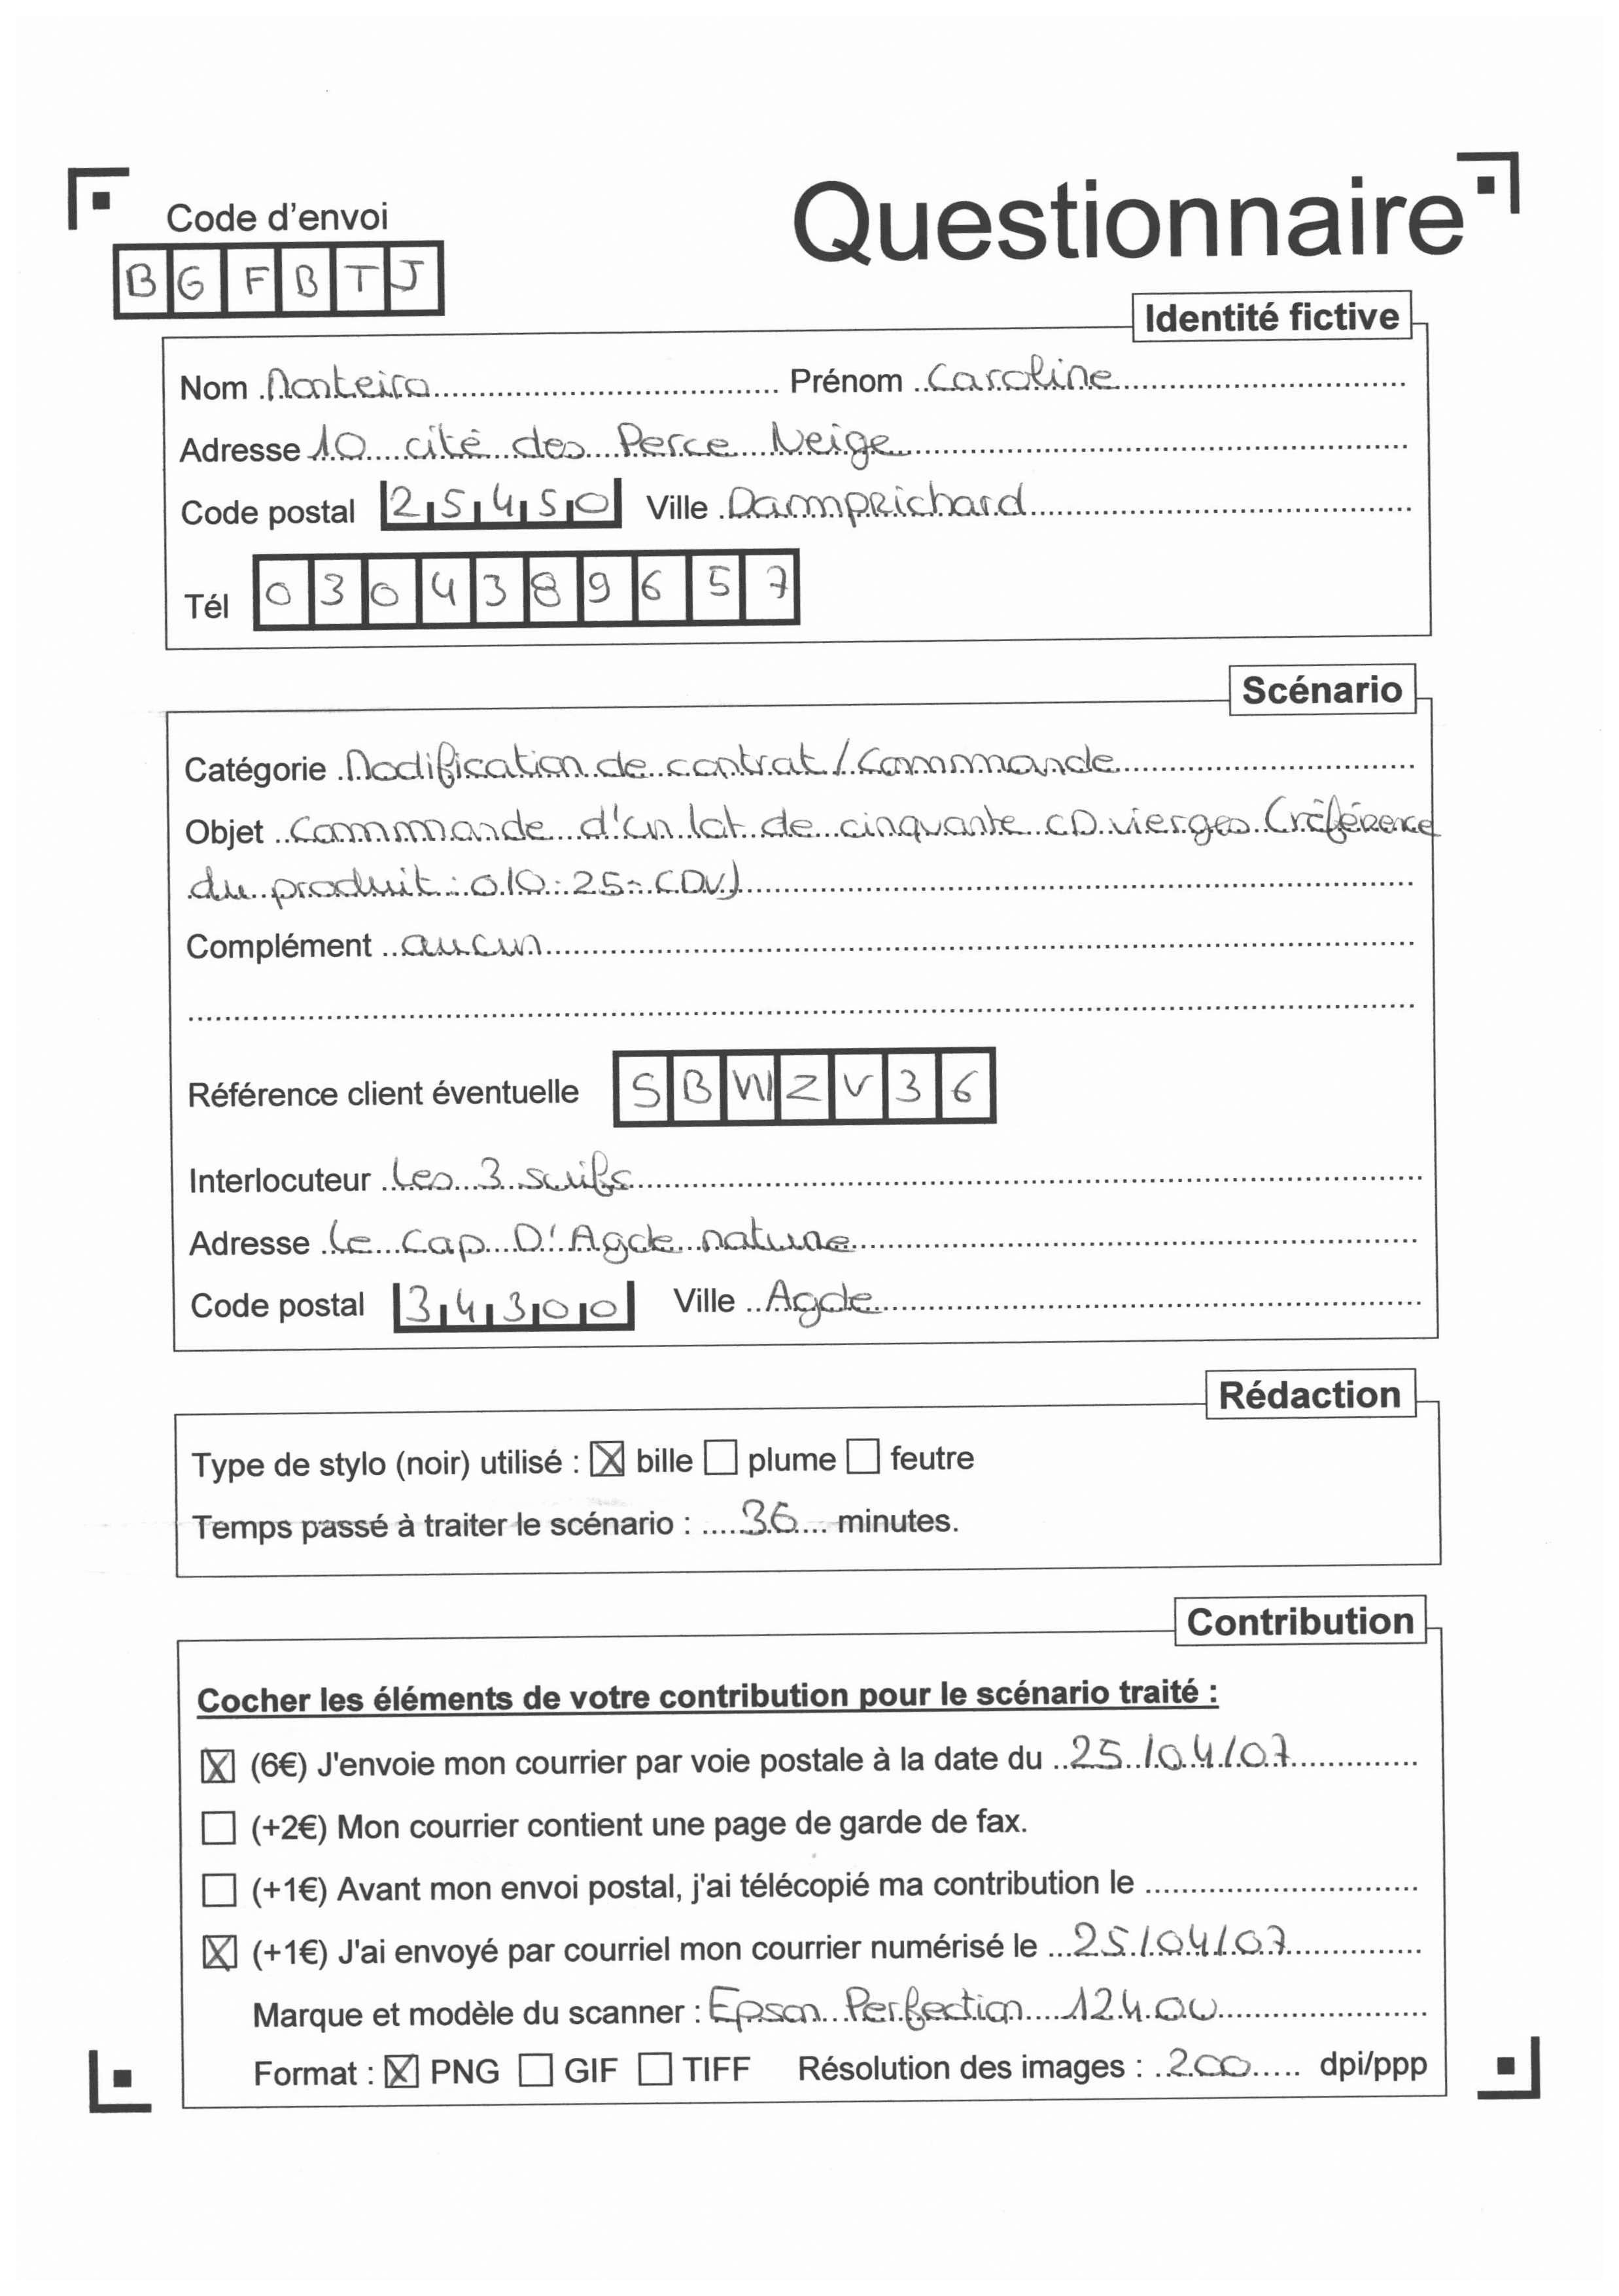 Code d'envoi
Questionnaire
BGFBTJ
Identité fictive
Nom Monteiro Prénom Caroline
Adresse 10 cité des Perce Neige
Code postal 25450 Ville Damprichard
Tél 0304389657
Scénario
Catégorie Modification de contrat / Commande
Objet Commande d'un lot de cinquante CD vierges (référence
du produit : 010-25-CDV)
Complément aucun
Référence client éventuelle SBWZV36
Interlocuteur Les 3 suifs
Adresse Le Cap D'Agde nature
Code postal 34300 Ville Agde
Rédaction
Type de stylo (noir) utilisé : ☒ bille ☐ plume ☐ feutre
Temps passé à traiter le scénario : 36 minutes.
Contribution
Cocher les éléments de votre contribution pour le scénario traité :
☒ (6€) J'envoie mon courrier par voie postale à la date du 25/04/07
☐ (+2€) Mon courrier contient une page de garde de fax.
☐ (+1€) Avant mon envoi postal, j'ai télécopié ma contribution le
☒ (+1€) J'ai envoyé par courriel mon courrier numérisé le 25/04/07
Marque et modèle du scanner : Epson Perfection 1240U
Format : ☒ PNG ☐ GIF ☐ TIFF Résolution des images : 200 dpi/ppp